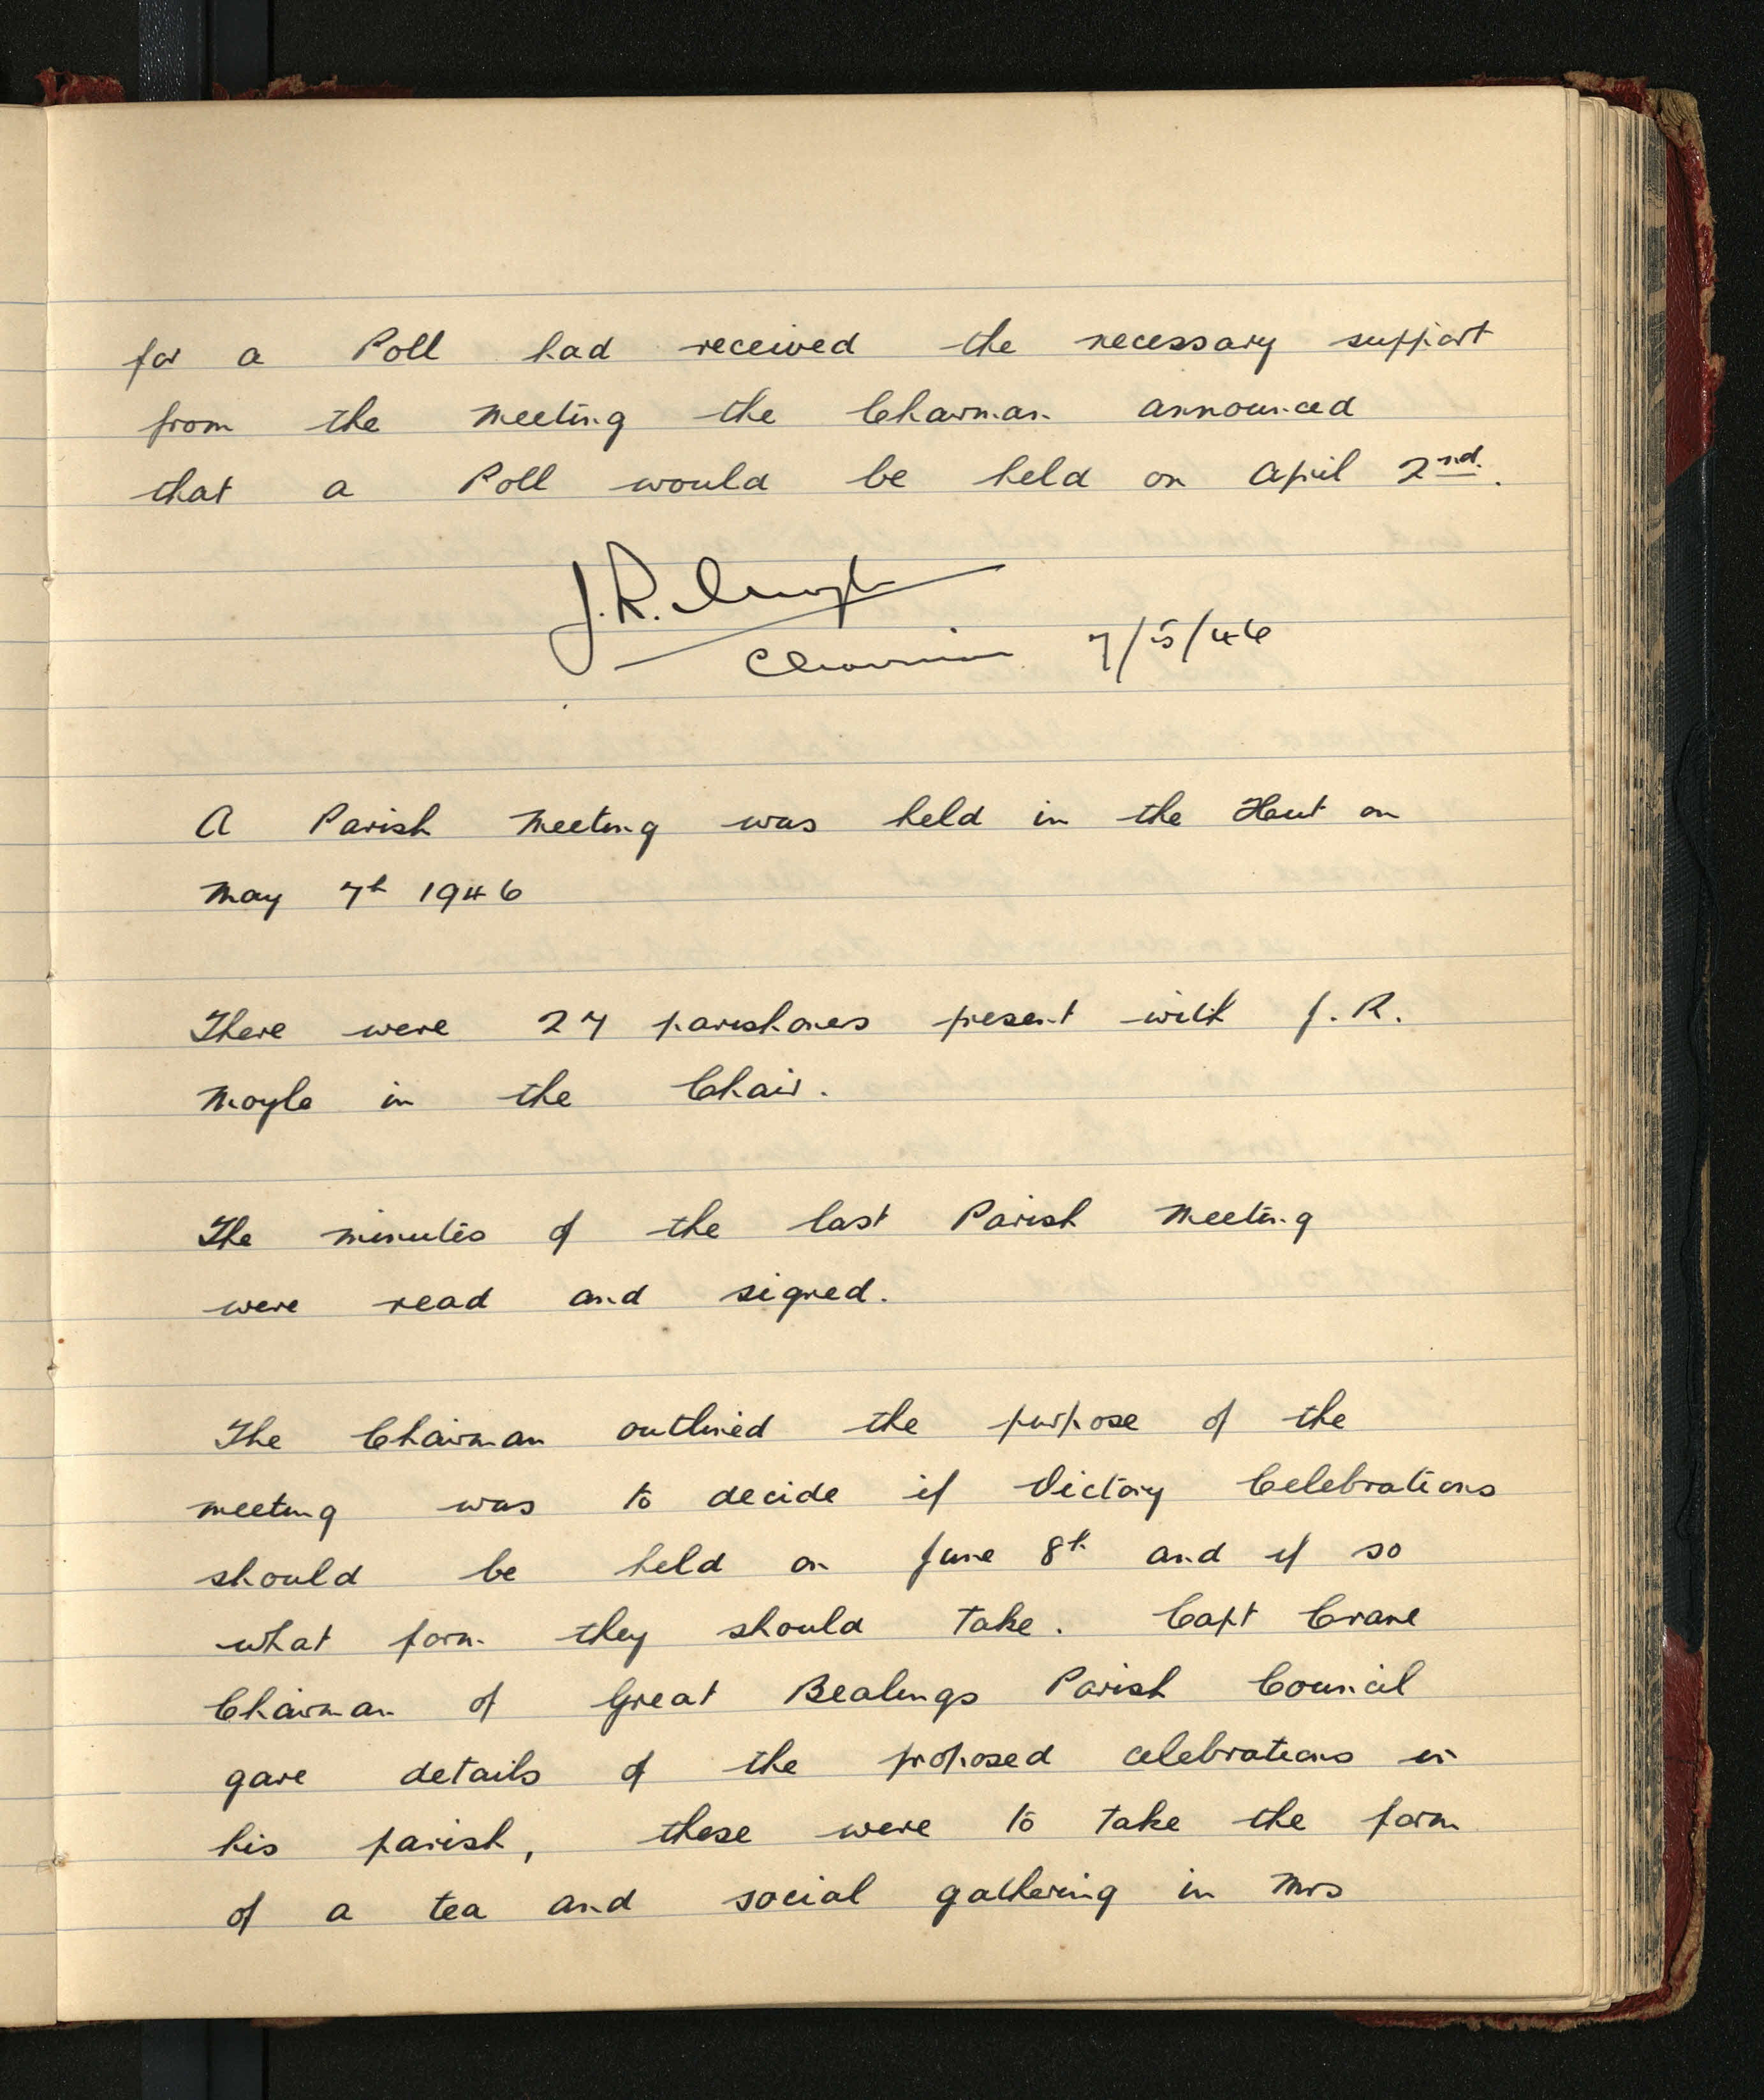 for a Poll had received the necessary support
from the Meeting the Chairman announced
that a Poll would be held on April 2nd.
J. R. Moyle
Chairman 7/5/46
A Parish Meeting was held in the Hut on
May 7th 1946
There were 27 parishoners present with J. R.
Moyle in the Chair.
The minutes of the last Parish Meeting
were read and signed.
The Chairman outlined the purpose of the
meeting was to decide if Victory Celebrations
should be held on June 8th and if so
what form they should take. Capt Crane
Chairman of Great Bealings Parish Council
gave details of the proposed celebrations in
his parish, these were to take the form
of a tea and social gathering in Mrs